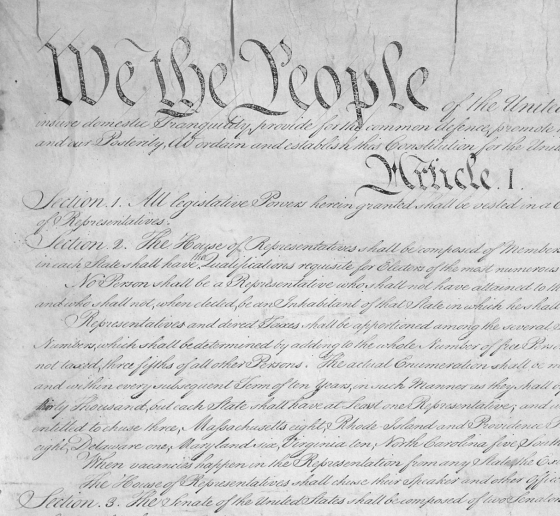 We the People of the United
insure domestic Tranquility, provide for the common defence, promote
and our Posterity, do ordain and establish this Constitution for the Unit
Article. I.
Section. 1. All legislative Powers herein granted shall be vested in a C
of Representatives.
Section. 2. The House of Representatives shall be composed of Members
in each State shall have the Qualifications requisite for Electors of the most numerous
No Person shall be a Representative who shall not have attained to th
and who shall not, when elected, be an Inhabitant of that State in which he shall
Representatives and direct Taxes shall be apportioned among the several
Numbers, which shall be determined by adding to the whole Number of free Perso
not taxed, three fifths of all other Persons. The actual Enumeration shall be m
and within every subsequent Term of ten Years, in such Manner as they shall by
thirty Thousand, but each State shall have at Least one Representative; and
entitled to chuse three, Massachusetts eight, Rhode Island and Providence P
eight, Delaware one, Maryland six, Virginia ten, North Carolina five, South
When vacancies happen in the Representation from any State, the Ex
The House of Representatives shall chuse their Speaker and other Offic
Section. 3. The Senate of the United States shall be composed of two Senator